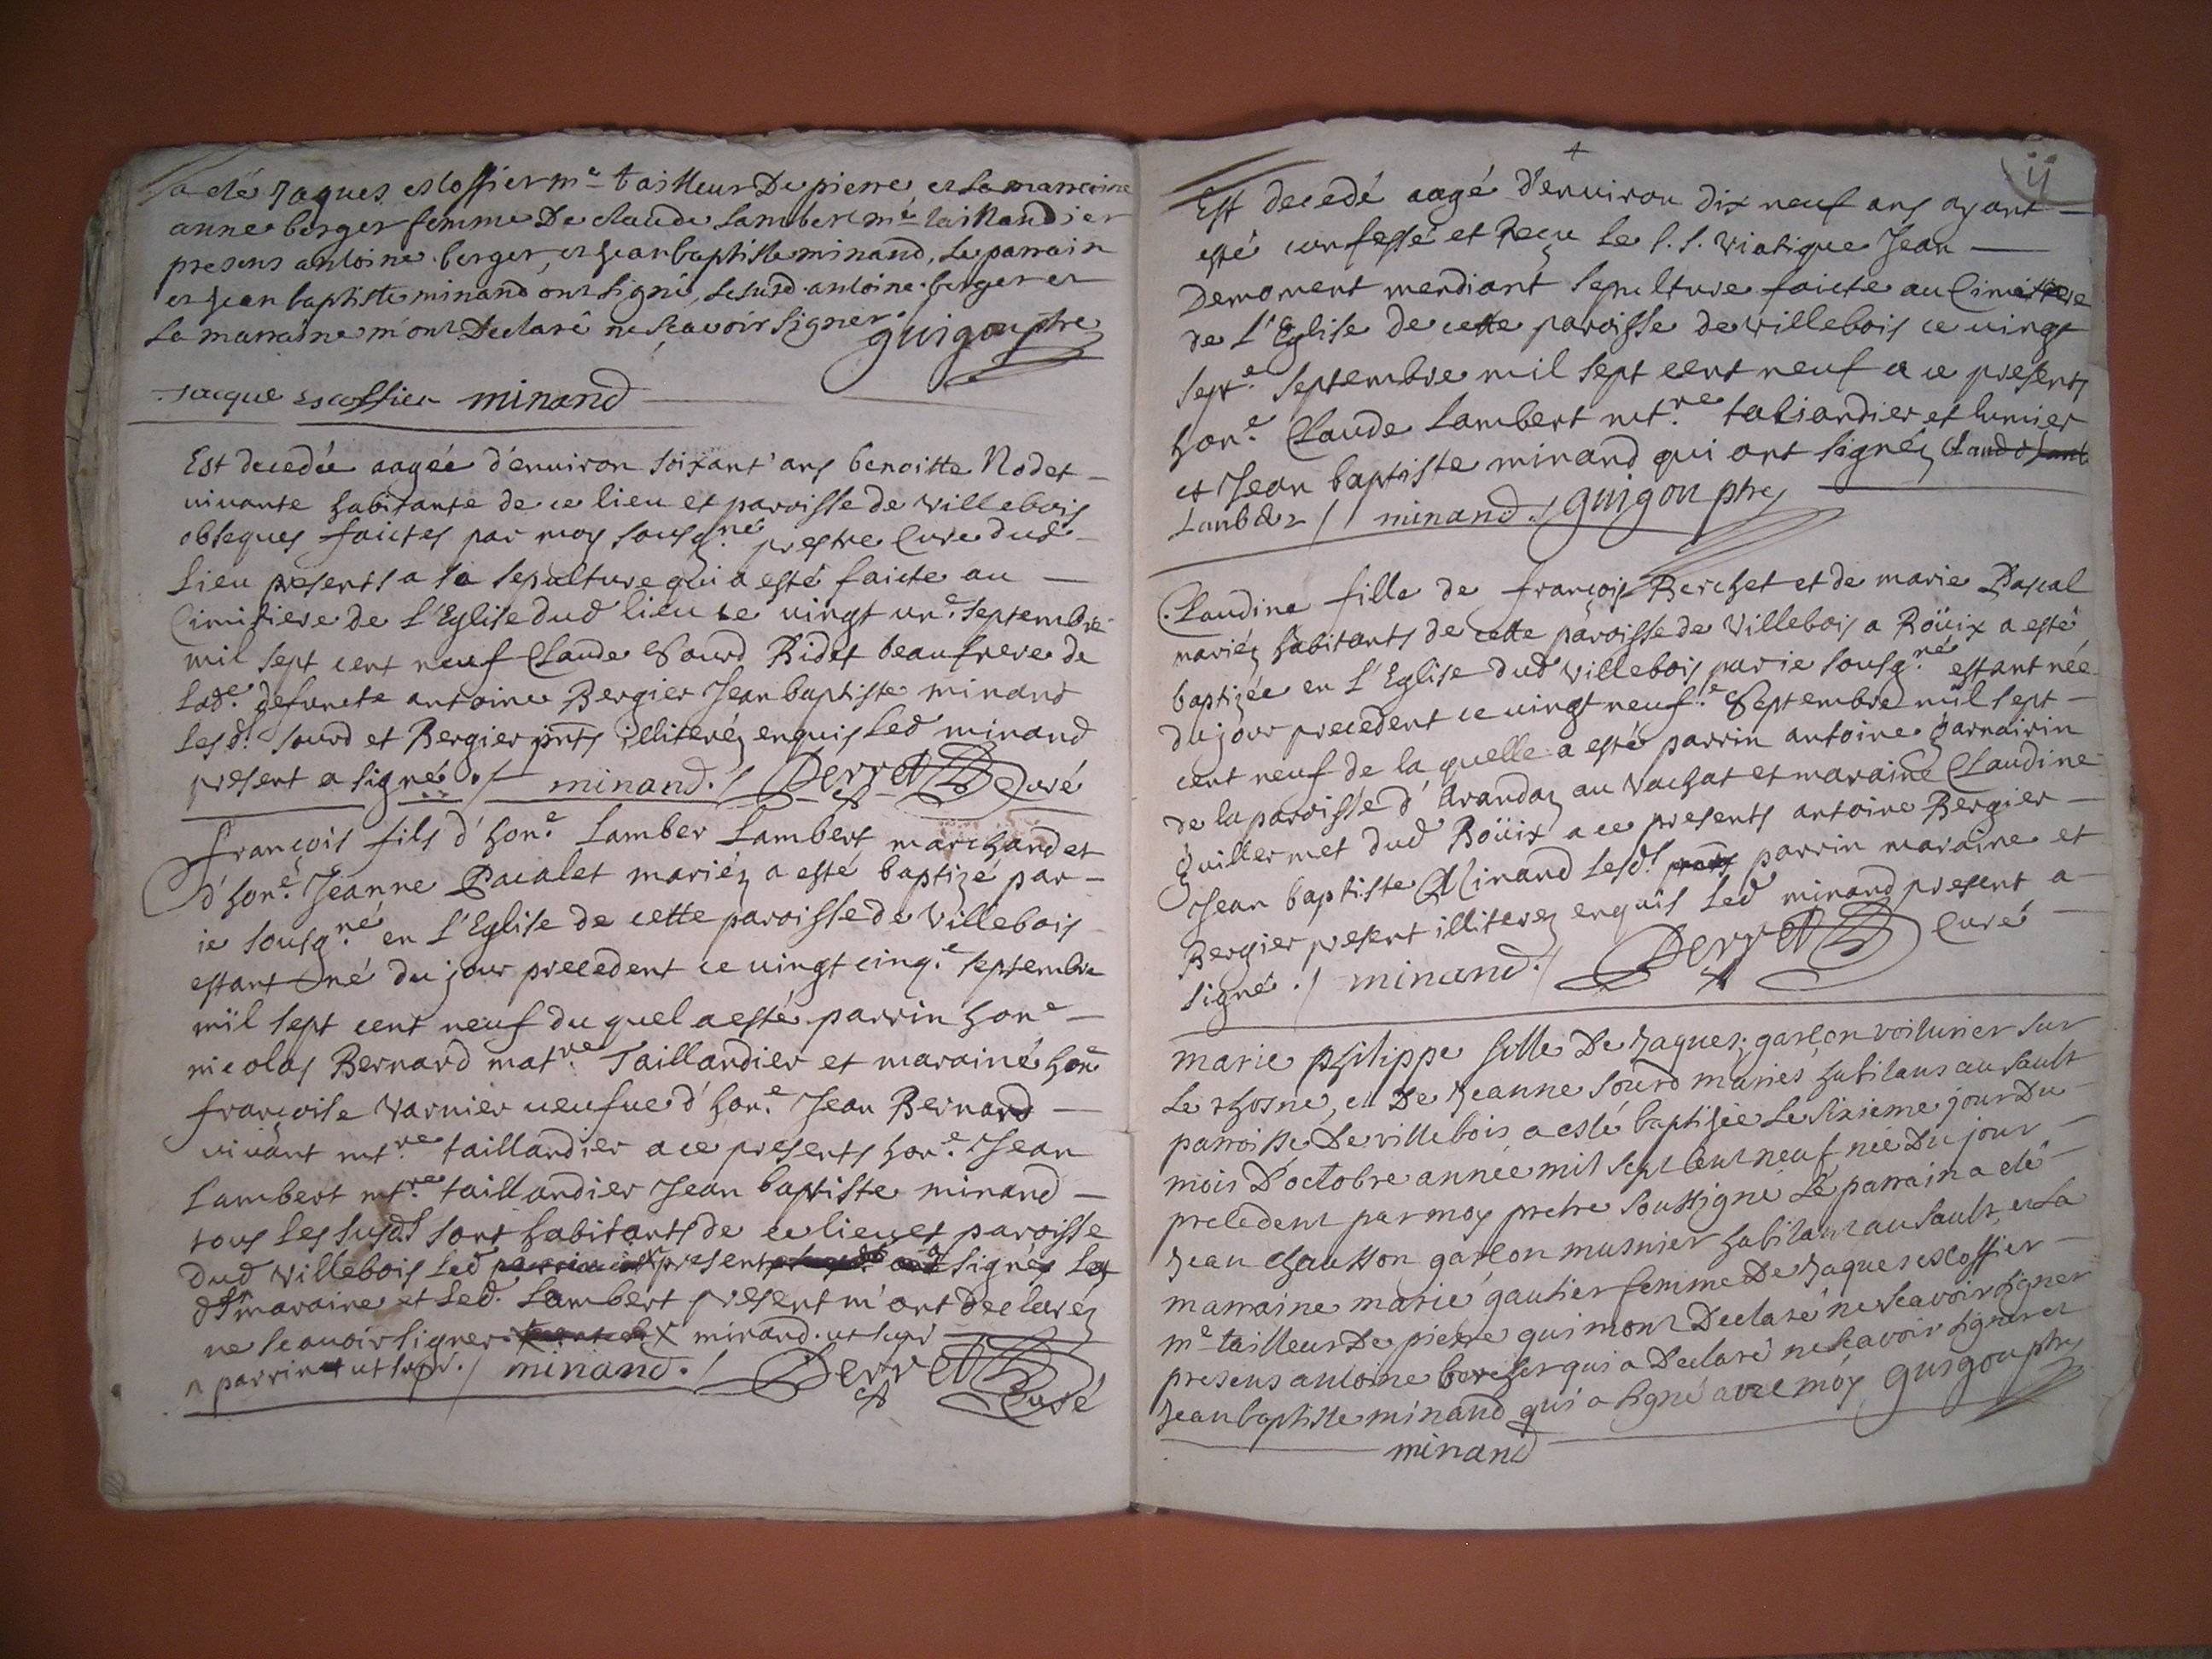 a eté Jaques escoffier me tailleur De pierre et la marroine
anne berger femme De claude Lambert me taillandier
presens antoine berger, et jean baptiste minand, Le parrain
et jean baptiste minand ont signé, Lesusd antoine berger et
La marraine m'ont Declaré ne scavoir signer. guigou ptre
Jacque escoffier minand
Est decedée aagée d'enuiron soixant' ans benoitte Nodet
uiuante habitante de ce lieu et paroisse de villebois
obseques faictes par moy sousg.né prestre Curé dud
Lieu presents a sa sepulture qui a esté faicte au
Cimitiere de L'Eglise dud lieu ce uingt un.e septembre
mil sept cent neuf Claude Sourd Bidet beaufrere de
Lad.e defuncte antoine Bergier Jean baptiste minand
Lesd.s Sourd et Bergier pnts illiteréz enquis Led minand
present a signé ./ minand./ Derret Curé
françois fils d'hon.e Lamber Lambert marchand et
d'hon.e Jeanne Pacalet mariéz a esté baptizé par
ie sousg.né en L'Eglise de cette paroisse de Villebois
estant né du jour precedent ce uingt cinq.e septembre
mil sept cent neuf du quel a esté parrin hon.e
nicolas Bernard mat.re Taillandier et maraine hon.e
françoise Varnier ueufue d'hon.e Jean Bernard
uiuant mt.re taillandier a ce presents hon.e Jean
Lambert mt.re taillandier Jean baptiste minand
tous les susd.s sont habitants de ce lieu et paroisse
dud Villebois Led present signéz La
d.e maraine et Led. Lambert present m'ont declaréz
ne scauoir signer minand. ut supr
parrin ut supr./ minand./ Derret Curé
ij
Est decedé aagé d'enuiron dix neuf ans ayant
esté confessé et Reçu Le s.s. viatique Jean
Demoment mendiant sepulture faicte au Cimittiere
de L'Eglise de cette paroisse de villebois ce uingt
sept.e septembre mil sept cent neuf a ce presents
hon.e Claude Lambert mt.re taliandier et
et Jean baptiste minand qui ont signéz
minand./ guigou ptre
Claudine fille de françois Berchet et de marie Pascal
mariéz habitants de cette paroisse de Villebois a Roüix a esté
baptizée en L'Eglise dud villebois par ie sousg.né estant née
du jour precedent ce uingt neuf.e Septembre mil sept
cent neuf de la quelle a esté parrin antoine
de la paroisse d'Arandaz au Vachat et maraine Claudine
Guillermet dud Roüix a ce presents antoine Bergier
Jean baptiste Minand Lesd.s parrin maraine et
Bergier present illiterez enquis Led minand present a
signé ./ minand./ Derret Curé
marie philippe fille De Jaques garçon voiturier sur
Le rhosne, et De Jeanne Sourd mariés habitans au Sault
parroisse De villebois a esté baptisée Le sixieme jour Du
mois D'octobre année mil sept cent neuf née Du jour
precedent par moy pretre soussigné Le parrain a eté
jean chausson garçon musnier habitant au Sault, et La
marraine marie gautier femme De Jaques escoffier
me tailleur De pierre qui mont Declaré ne scavoir signer
presens antoine berger qui a Declaré ne scavoir signer et
jean baptiste minand qui a signé avec moy guigou ptre
minand